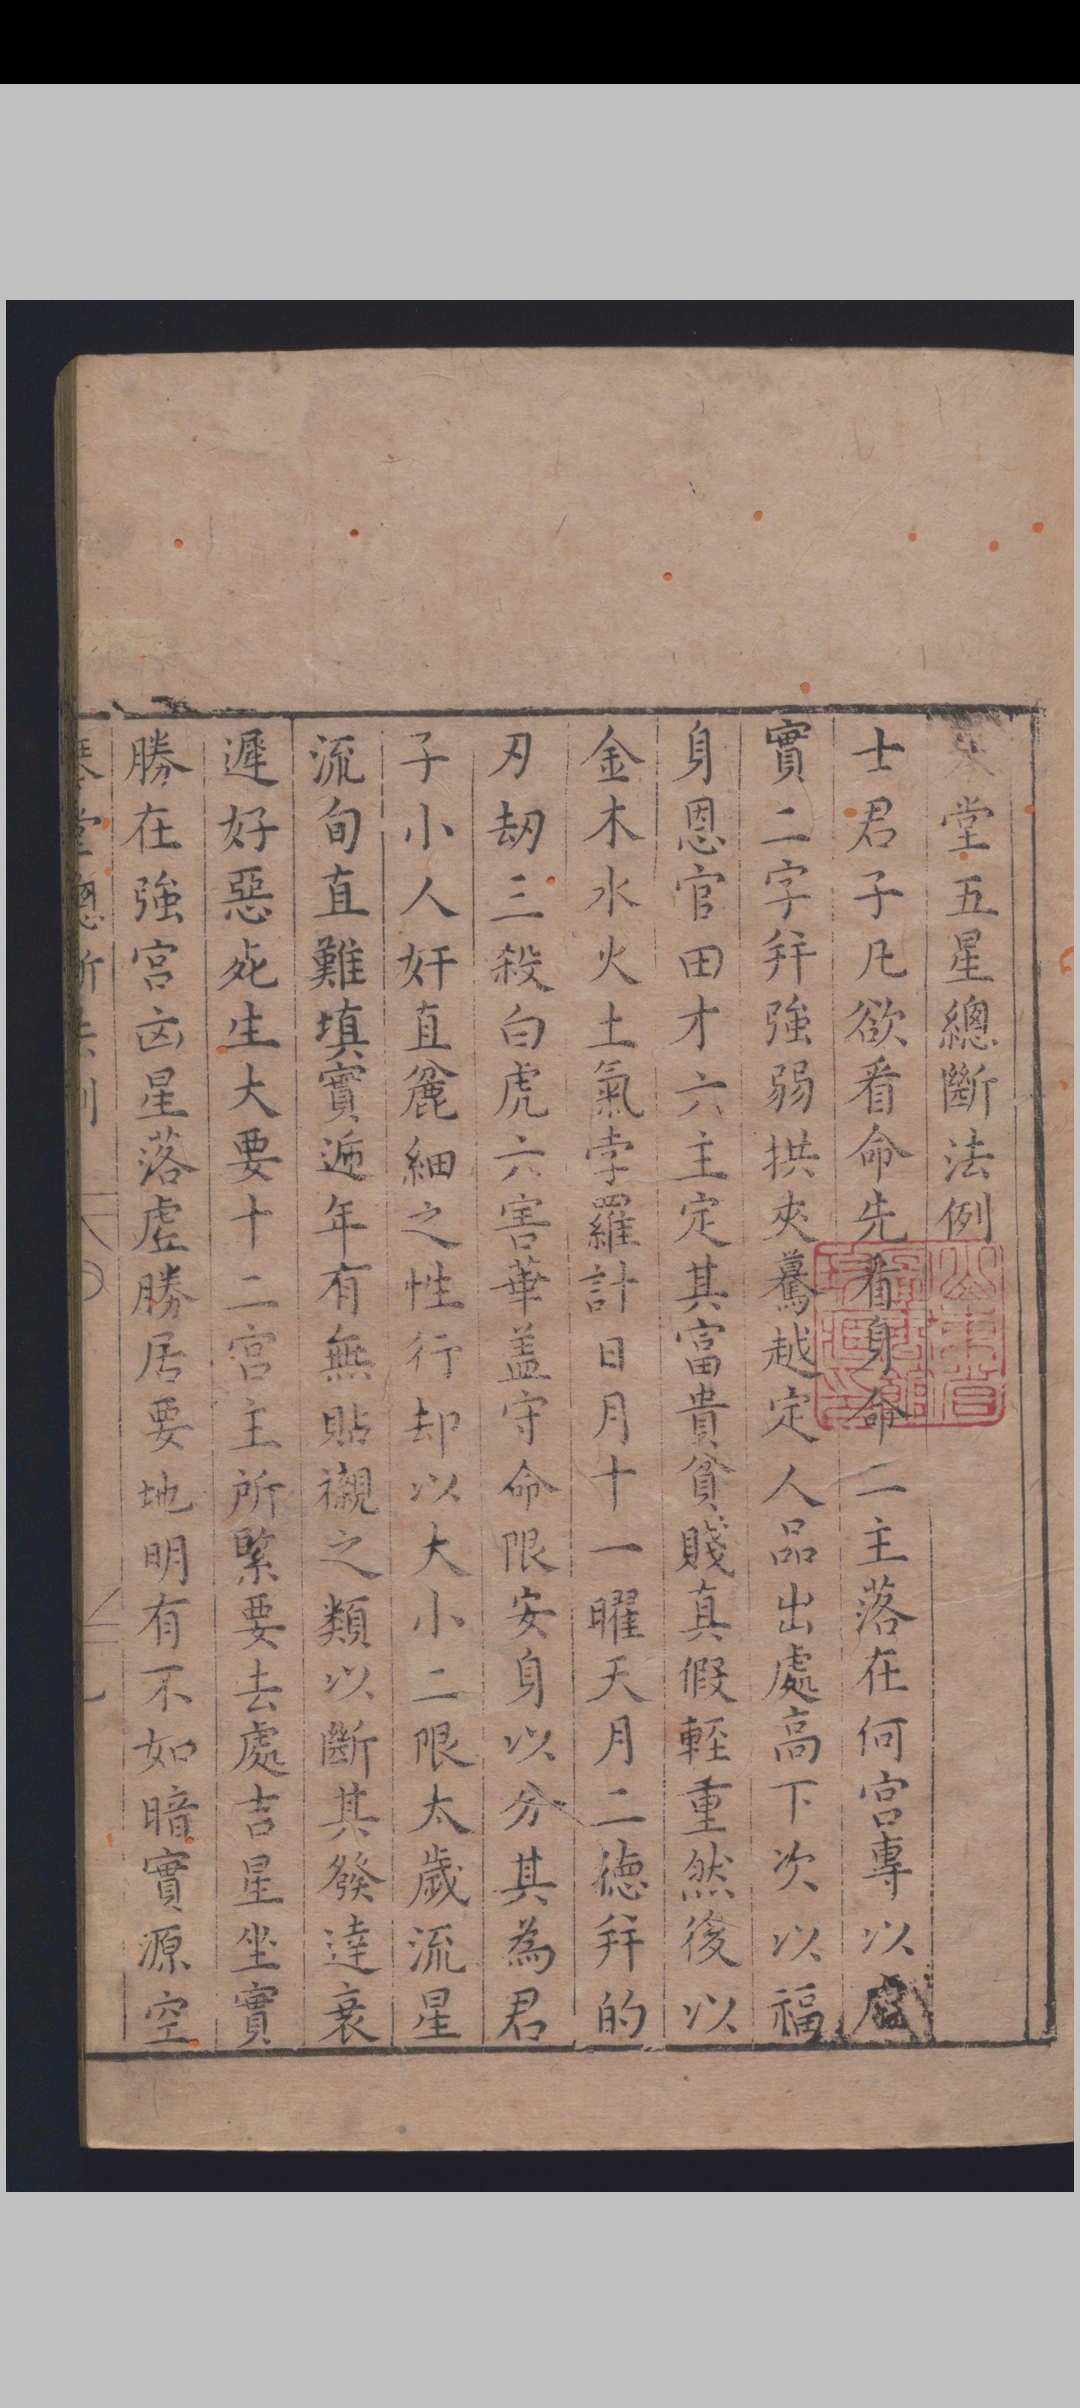 堂五星總斷法例
士君子凡欲看命先看身命二主落在何宮專以虛
實二字并強弱拱夾驀越定人品出處高下次以福
身恩官田才六主定其富貴貧賤真假輕重然後以
金木水火土氣孛羅計日月十一曜天月二德并的
刃劫三殺白虎六害華盖守命限安身以分其為君
子小人奸直麄細之性行却以大小二限太歲流星
流旬直難填實遞年有無貼襯之類以斷其發達衰
遲好惡死生大要十二宮主所緊要去處吉星坐實
勝在強宮凶星落虛勝居要地明有不如暗實源空
堂總斷法例